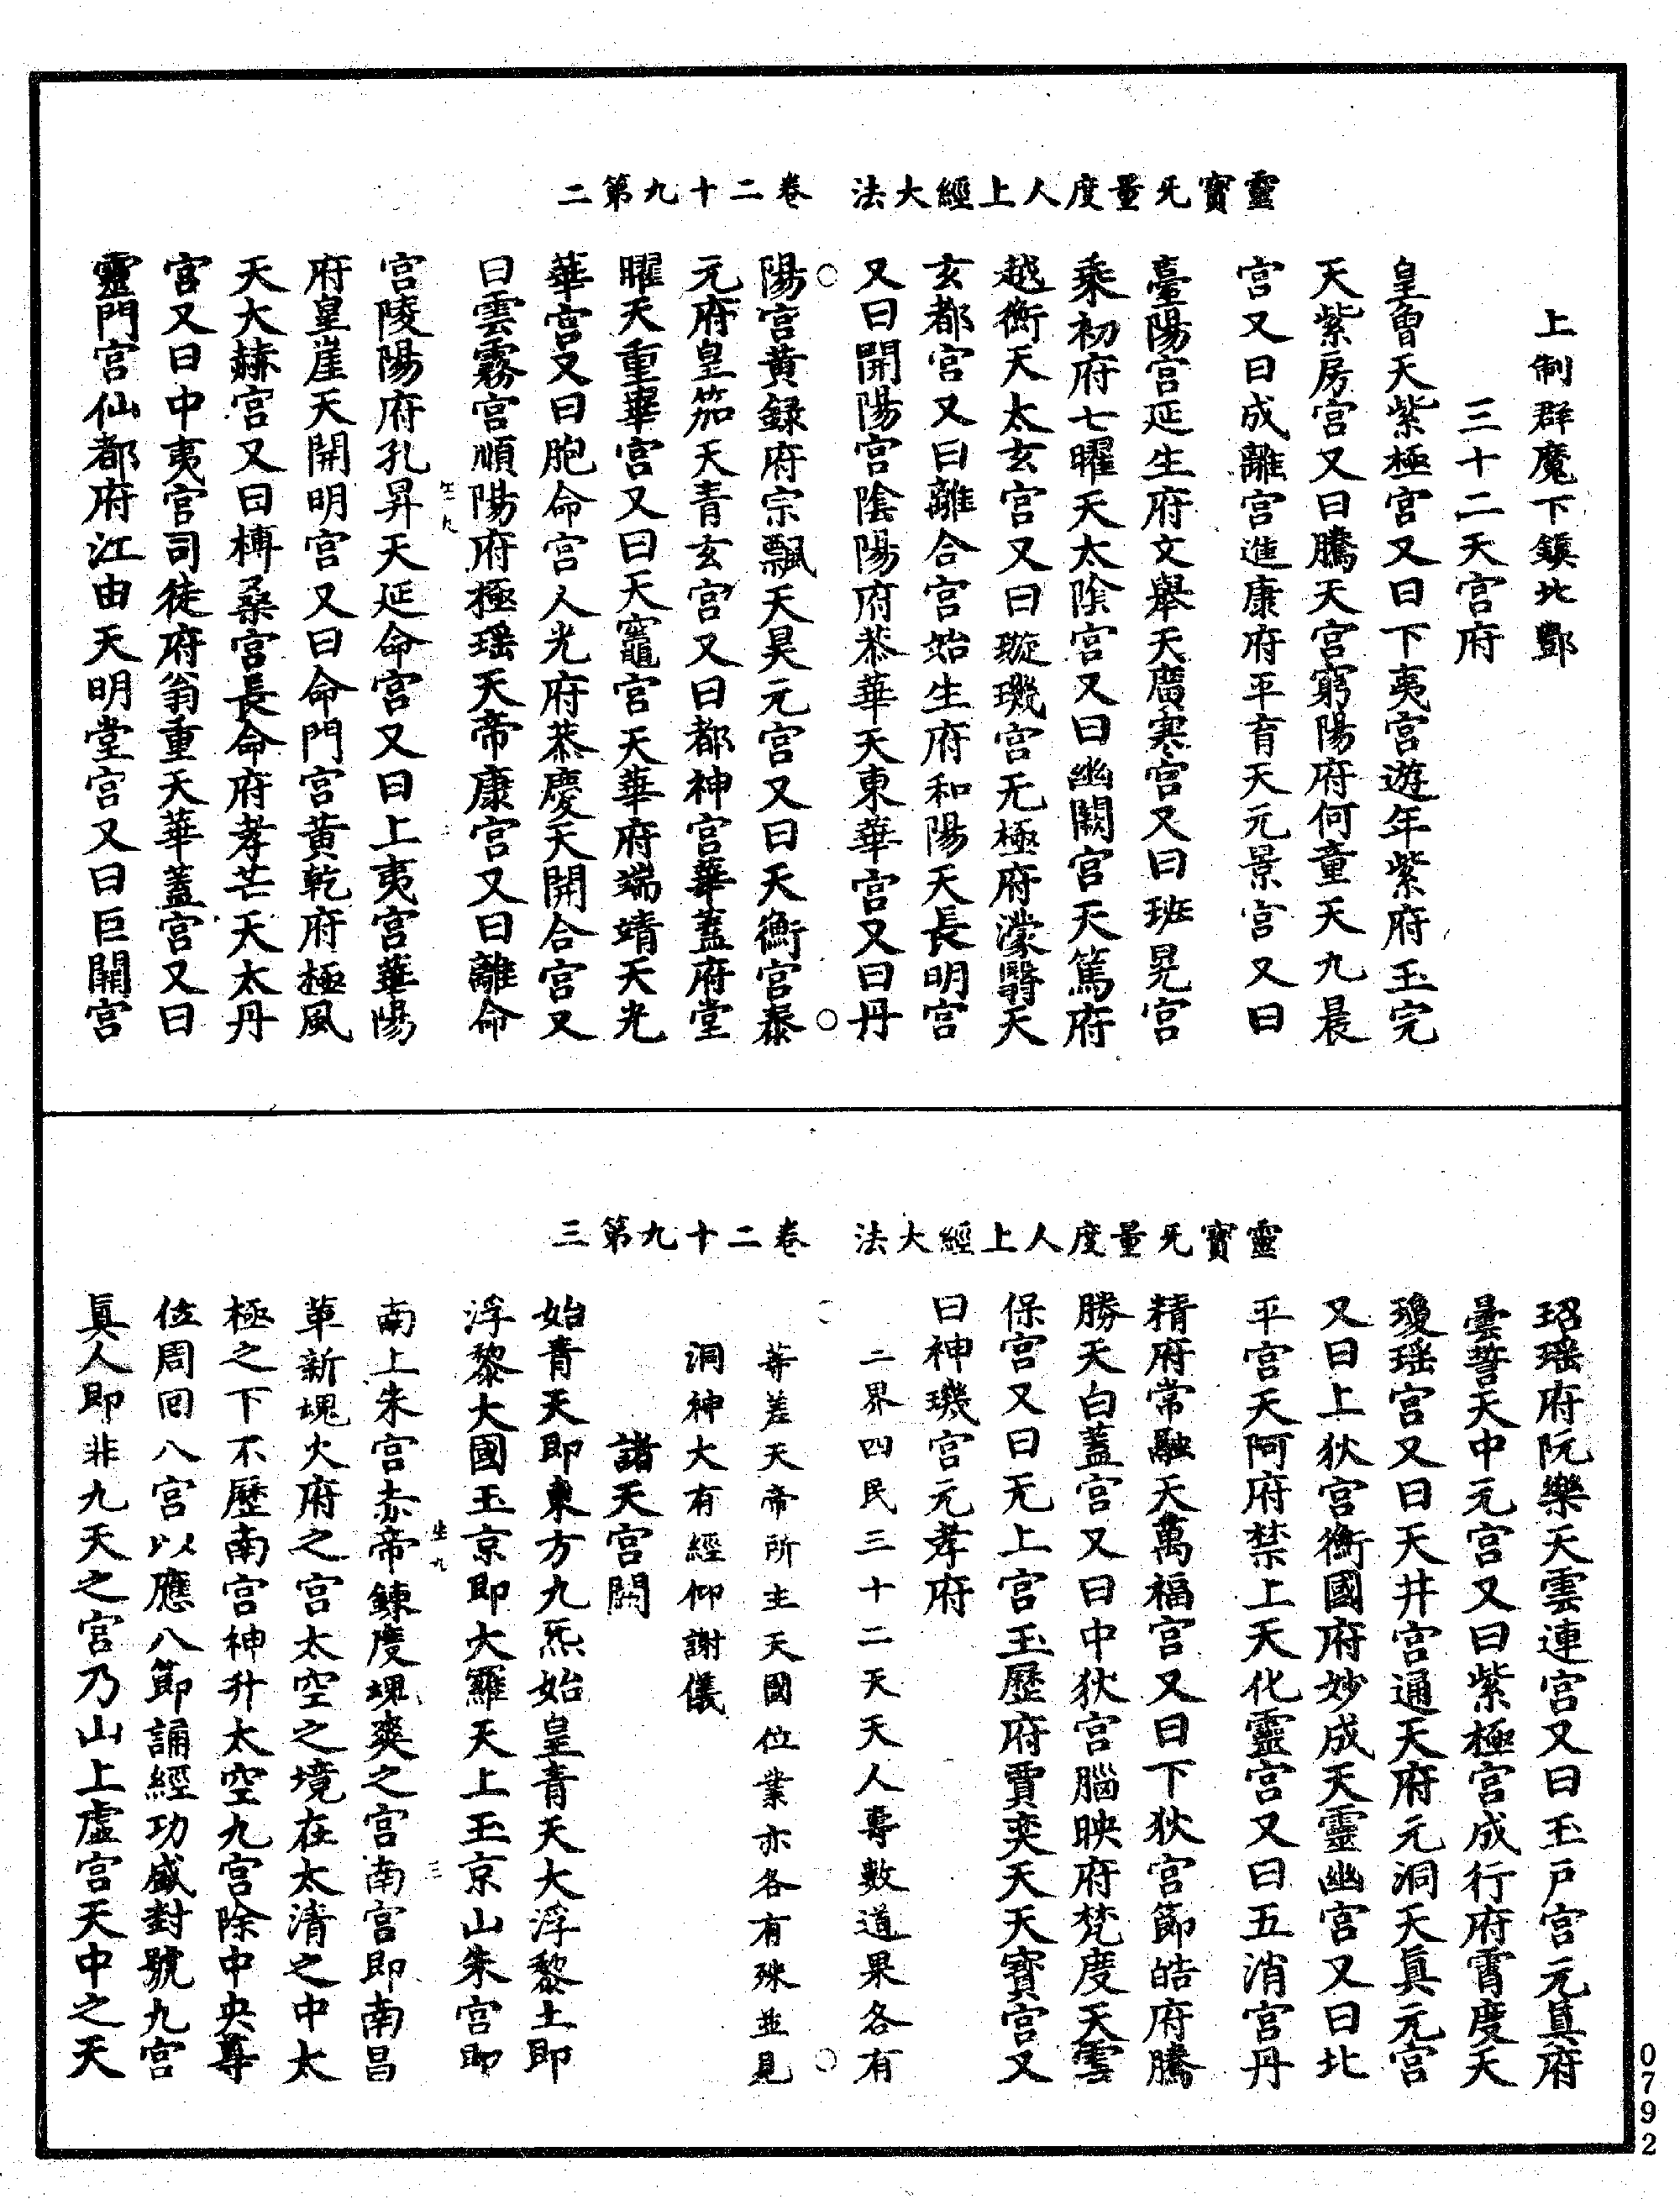 靈寶无量度人上經大法　卷二十九第二
上制群魔下鎮北酆
三十二天宮府
皇曾天紫極宮又曰下夷宮遊年紫府玉完
天紫房宮又曰騰天宮窮陽府何童天九晨
宮又曰成離宮進康府平育天元景宮又曰
臺陽宮延生府文舉天廣寒宮又曰班晃宮
乘初府七曜天太陰宮又曰幽闕宮天篤府
越衡天太玄宮又曰璇璣宮无極府濛翳天
玄都宮又曰離合宮始生府和陽天長明宮
又曰開陽宮陰陽府恭華天東華宮又曰丹
陽宮黃錄府宗飄天昊元宮又曰天衡宮泰
元府皇笳天青玄宮又曰都神宮華蓋府堂
曜天重華宮又曰天竈宮天華府端靖天光
華宮又曰胞命宮人光府恭慶天開合宮又
曰雲霧宮順陽府極瑤天帝康宮又曰離命
宮陵陽府孔昇天延命宮又曰上夷宮華陽
府皇崖天開明宮又曰命門宮黃乾府極風
天大赫宮又曰榑桑宮長命府孝芒天太丹
宮又曰中夷宮司徒府翁重天華蓋宮又曰
靈門宮仙都府江由天明堂宮又曰巨關宮
靈寶无量度人上經大法　卷二十九第三
玿瑤府阮樂天雲連宮又曰玉戶宮元真府
曇誓天中元宮又曰紫極宮成行府霄度天
瓊瑤宮又曰天井宮通天府元洞天真元宮
又曰上狄宮衡國府妙成天靈幽宮又曰北
平宮天阿府禁上天化靈宮又曰五消宮丹
精府常融天萬福宮又曰下狄宮節皓府騰
勝天白蓋宮又曰中狄宮腦映府梵度天雲
保宮又曰无上宮玉歷府賈奕天天寶宮又
曰神璣宮元孝府
二界四民三十二天天人專數道果各有
等差天帝所主天國位業亦各有殊並見
洞神大有經仰謝儀
諸天宮闕
始青天即東方九炁始皇青天大浮黎土即
浮黎大國玉京即大羅天上玉京山朱宮即
南上朱宮赤帝鍊度魂爽之宮南宮即南昌
革新塊火府之宮太空之境在太清之中太
極之下不歷南宮神升太空九宮除中央尊
位周回八宮以應八節誦經功盛對號九宮
真人即非九天之宮乃山上虛宮天中之天
0792